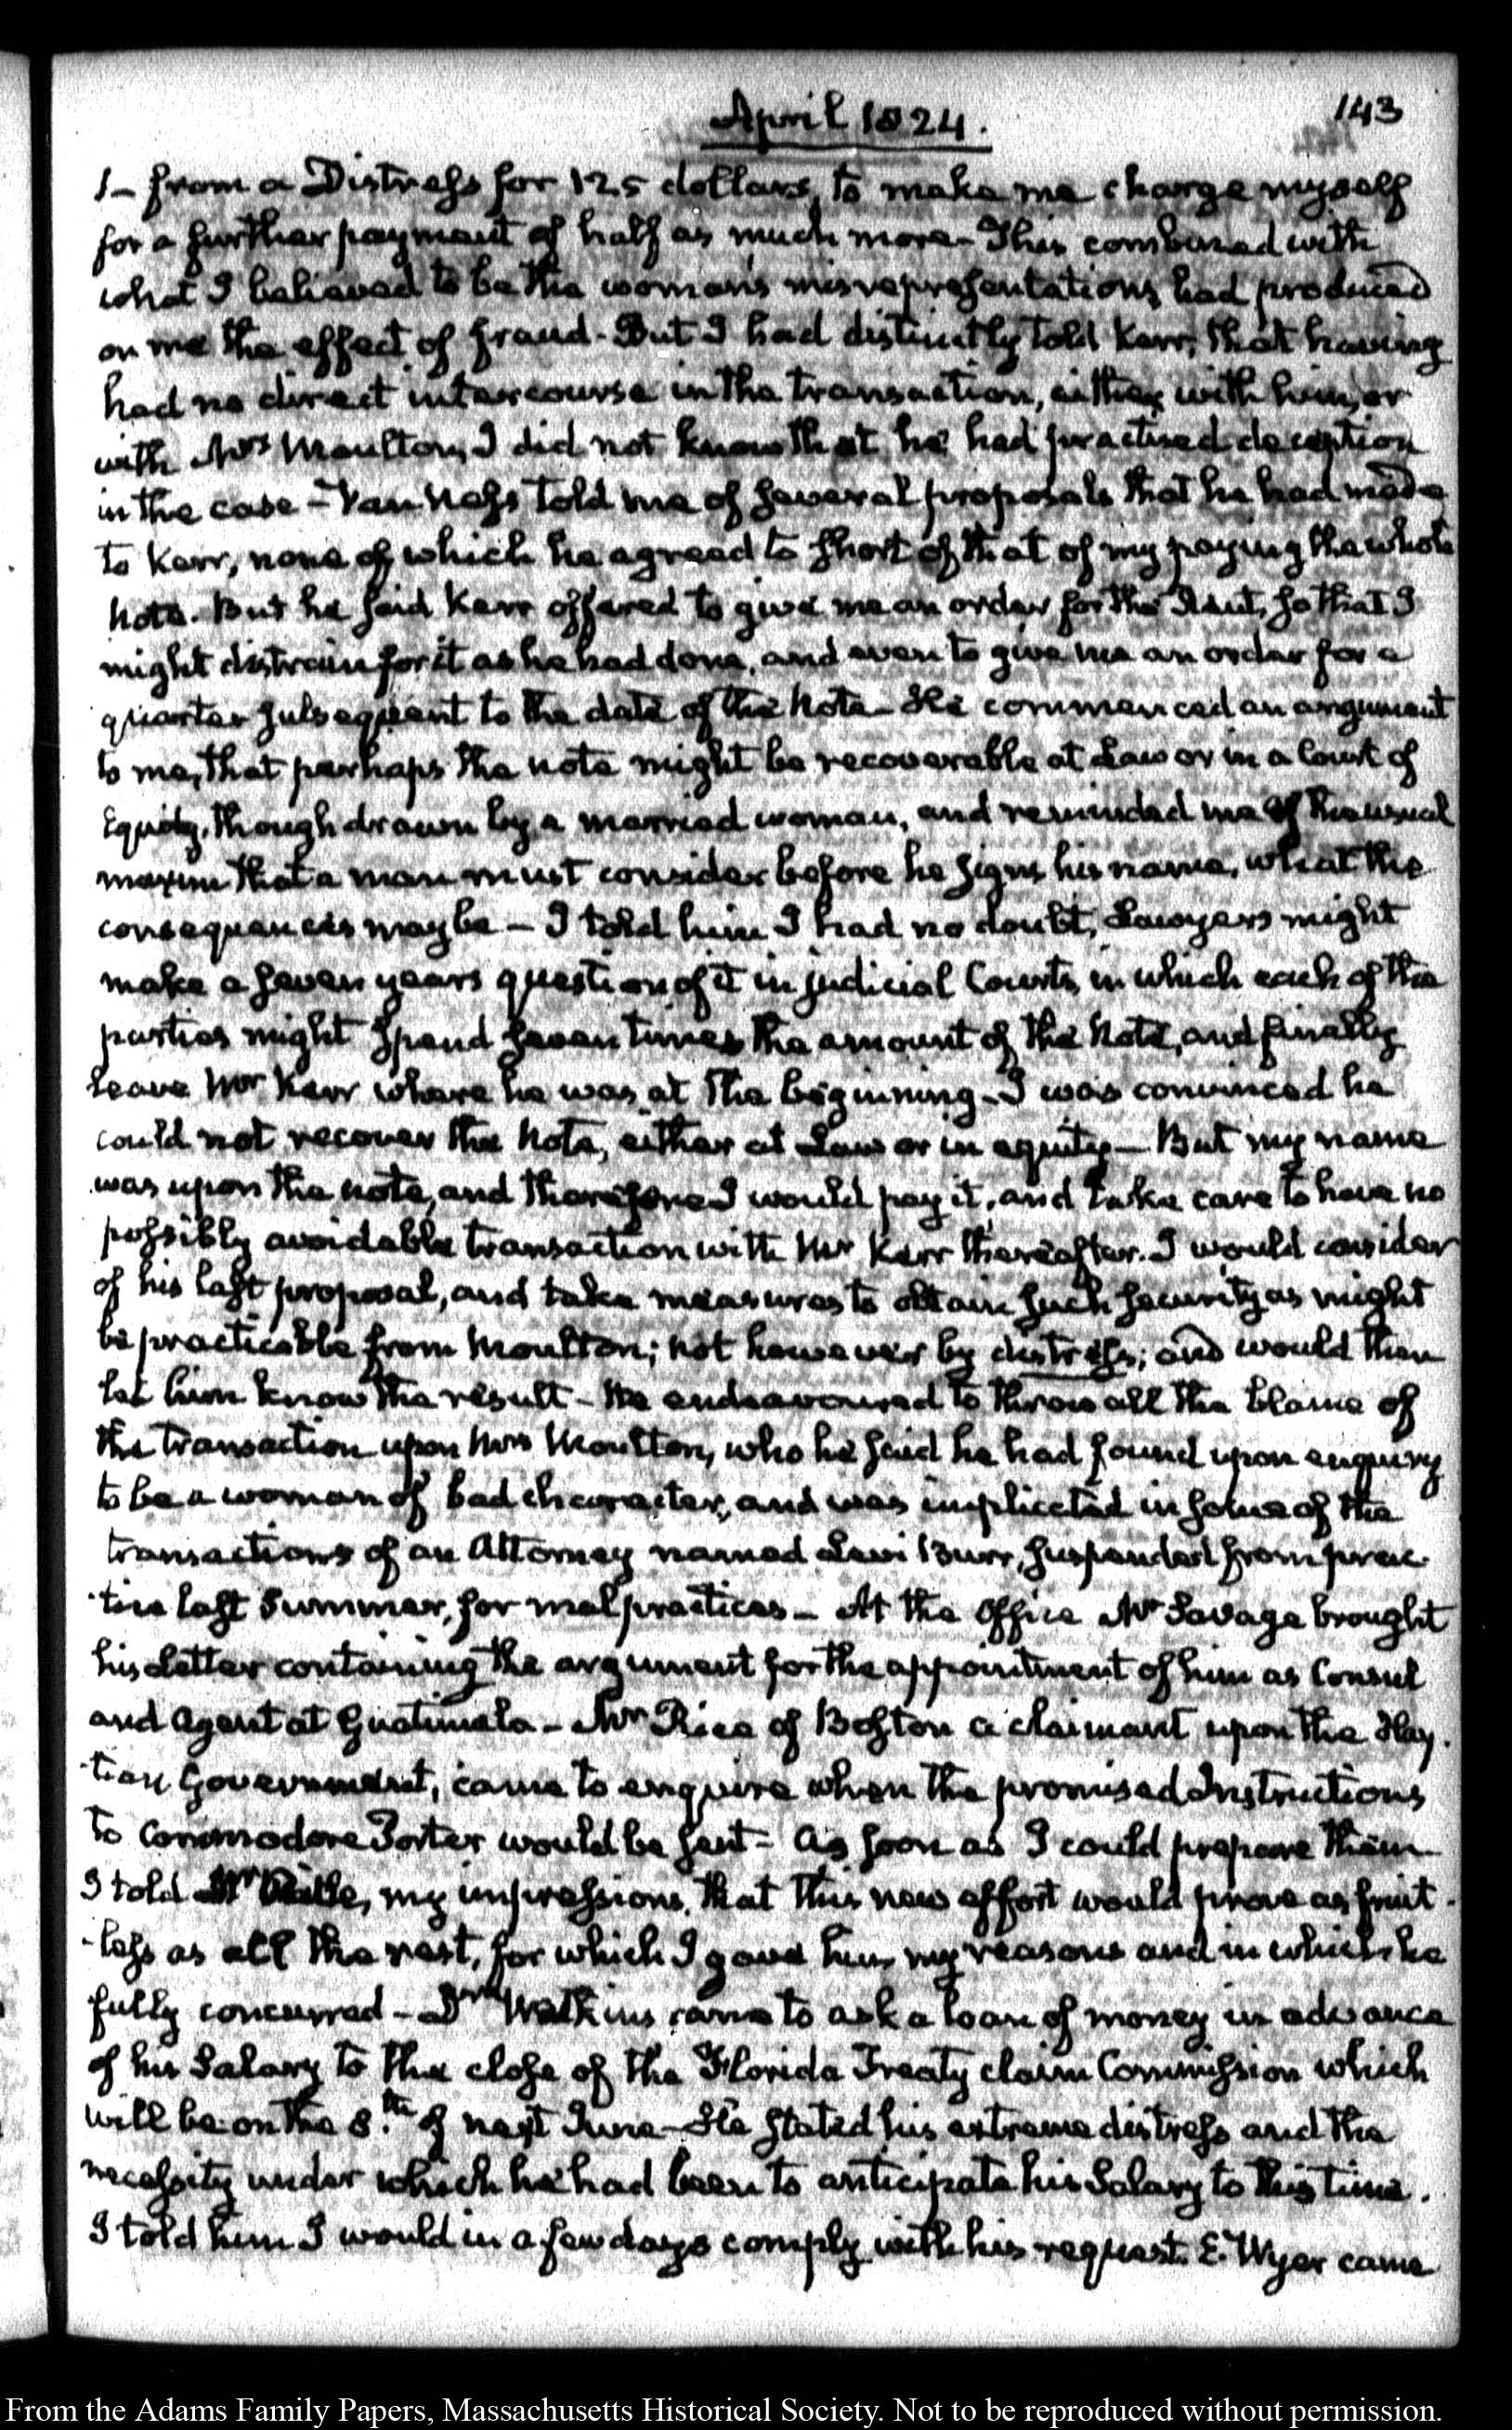 April 1824.
143
1- from a Distress for 125 dollars, to make me charge myself
for a further payment of half as much more- This combined with
what I believed to be the woman's misrepresentations had produced
on me the effect of fraud- But I had distinctly told Kerr, that having
had no direct intercourse in the transaction, either with him, or
with Mrs Moulton, I did not know that he had practised deception
in the case- Van Ness told me of several proposals that he had made
to Kerr, none of which he agreed to short of that of my paying the whole
Note. But he said Kerr offered to give me an order for the Rent, so that I
might distrain for it as he had done, and even to give me an order for a
quarter subsequent to the date of the Note- He commenced an argument
to me, that perhaps the note might be recoverable at Law or in a Court of
Equity, though drawn by a married woman, and reminded me of the usual
maxim that a man must consider before he signs his name, what the
consequences may be- I told him I had no doubt, Lawyers might
make a seven years question of it in judicial Courts, in which each of the
parties might spend seven times the amount of the Note, and finally
leave Mr Kerr where he was at the beginning- I was convinced he
could not recover the Note, either at Law or in equity- But my name
was upon the note, and therefore I would pay it, and take care to have no
possibly avoidable transaction with Mr Kerr thereafter. I would consider
of his last proposal, and take measures to obtain such security as might
be practicable from Moulton; not however by distress; and would then
let him know the result- He endeavoured to throw all the blame of
the transaction upon Mrs Moulton, who he said he had found upon enquiry
to be a woman of bad character, and was implicated in some of the
transactions of an Attorney named Levi Burr, suspended from prac-
-tice last Summer, for malpractices- At the Office Mr Savage brought
his Letter containing the argument for the appointment of him as Consul
and Agent at Guatimala- Mr Rice of Boston a claimant upon the Hay-
-tian Government, came to enquire when the promised Instructions
to Commodore Porter would be sent- As soon as I could prepare them-
I told Mr my impressions, that this new effort would prove as fruit-
-less as all the rest, for which I gave him my reasons and in which he
fully concurred- Dr Watkins came to ask a loan of money in advance
of his Salary to the close of the Florida Treaty claim Commission which
will be on the 8.th of next June- He stated his extreme distress and the
necessity under which he had been to anticipate his Salary to this time.
I told him I would in a few days comply with his request. E. Wyer came
From the Adams Family Papers, Massachusetts Historical Society. Not to be reproduced without permission.